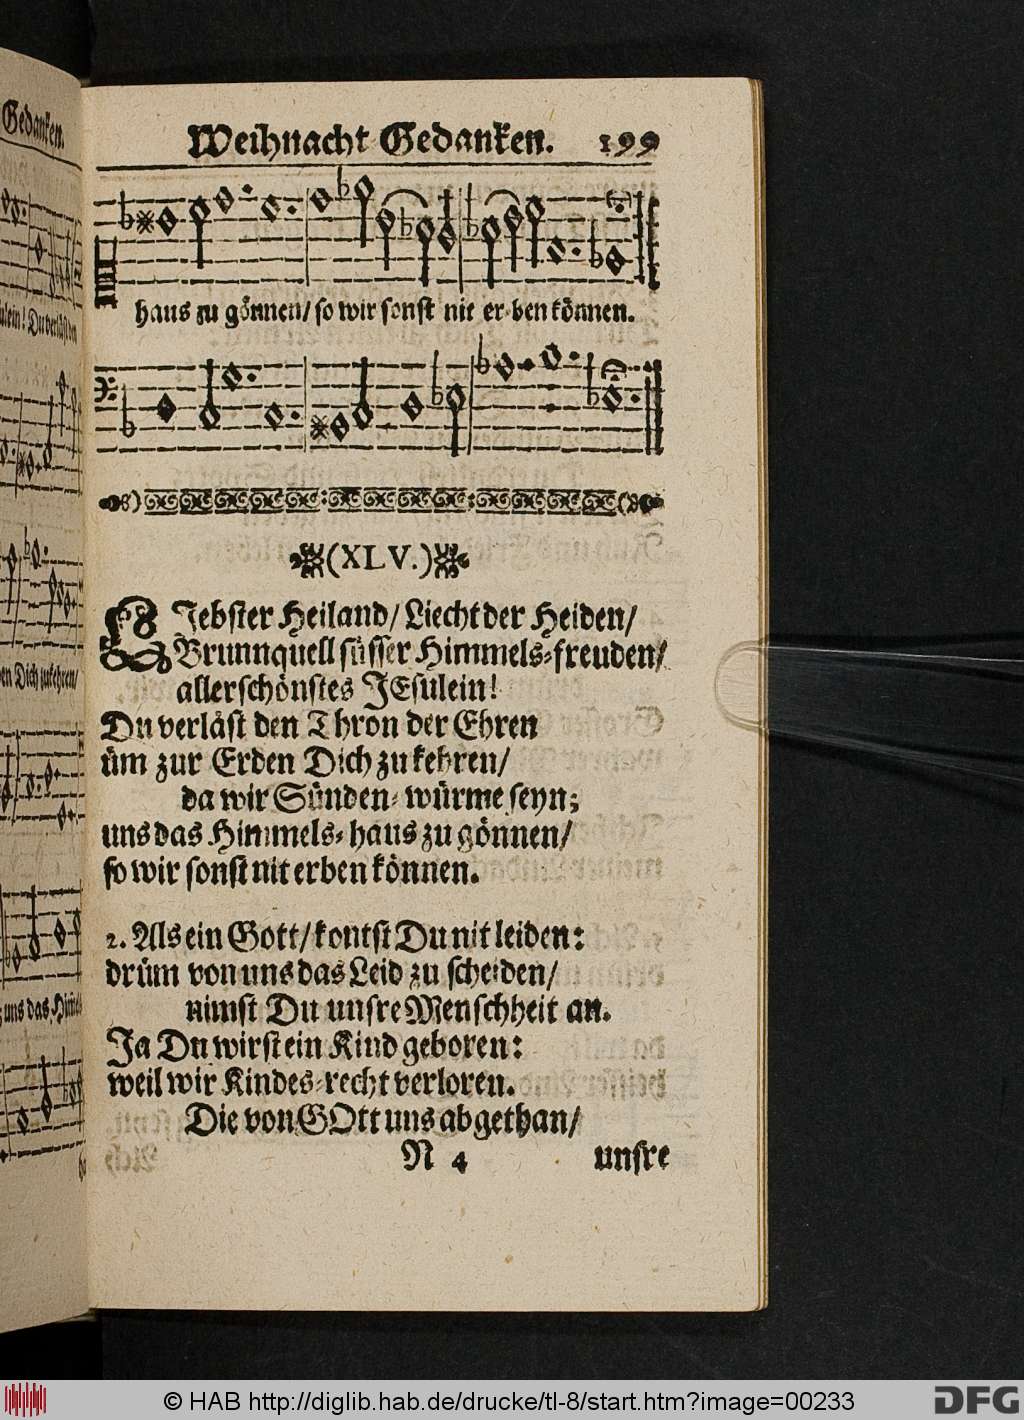 Gedanken.
Weihnacht Gedanken. 199
haus zu gönnen/ so wir sonst nit er-ben können.
(XLV.)
LIebster Heiland/ Liecht der Heiden/
Brunnquell süsser Himmels-freuden/
allerschönstes JEsulein!
Du verläst den Thron der Ehren
üm zur Erden Dich zu kehren/
da wir Sünden-würme seyn;
uns das Himmels-haus zu gönnen/
so wir sonst nit erben können.
2. Als ein Gott/ kontst Du nit leiden:
drüm von uns das Leid zu scheiden/
nimst Du unsre Menschheit an.
Ja Du wirst ein Kind geboren:
weil wir Kindes-recht verloren.
Die von GOtt uns abgethan/
N 4 unsre
© HAB http://diglib.hab.de/drucke/tl-8/start.htm?image=00233
DFG